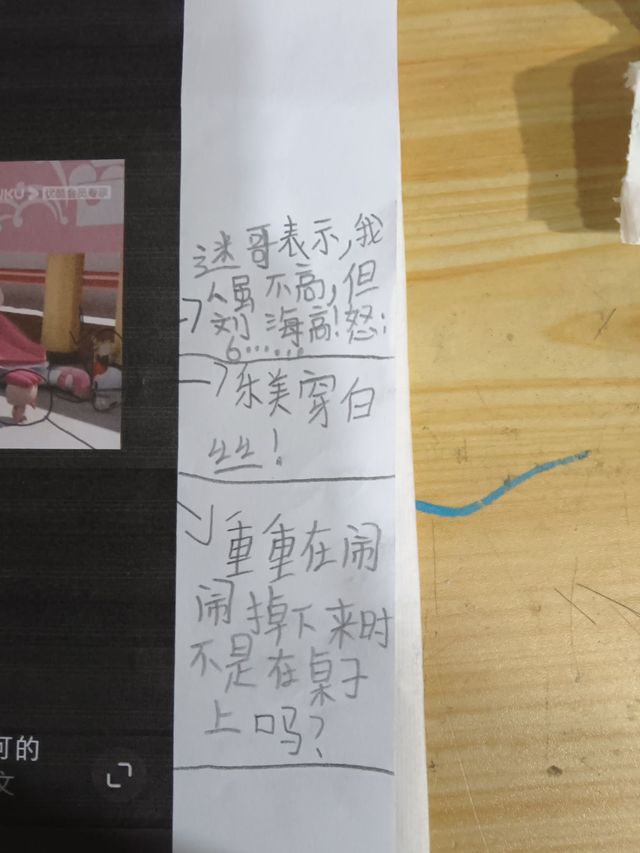 UKU 优酷会员专享
迷哥表示,我
人虽不高,但
刘海高!怒:
6……
乐美穿白
丝!
重重在闹
闹掉下来时
不是在桌子
上吗?
可的
文